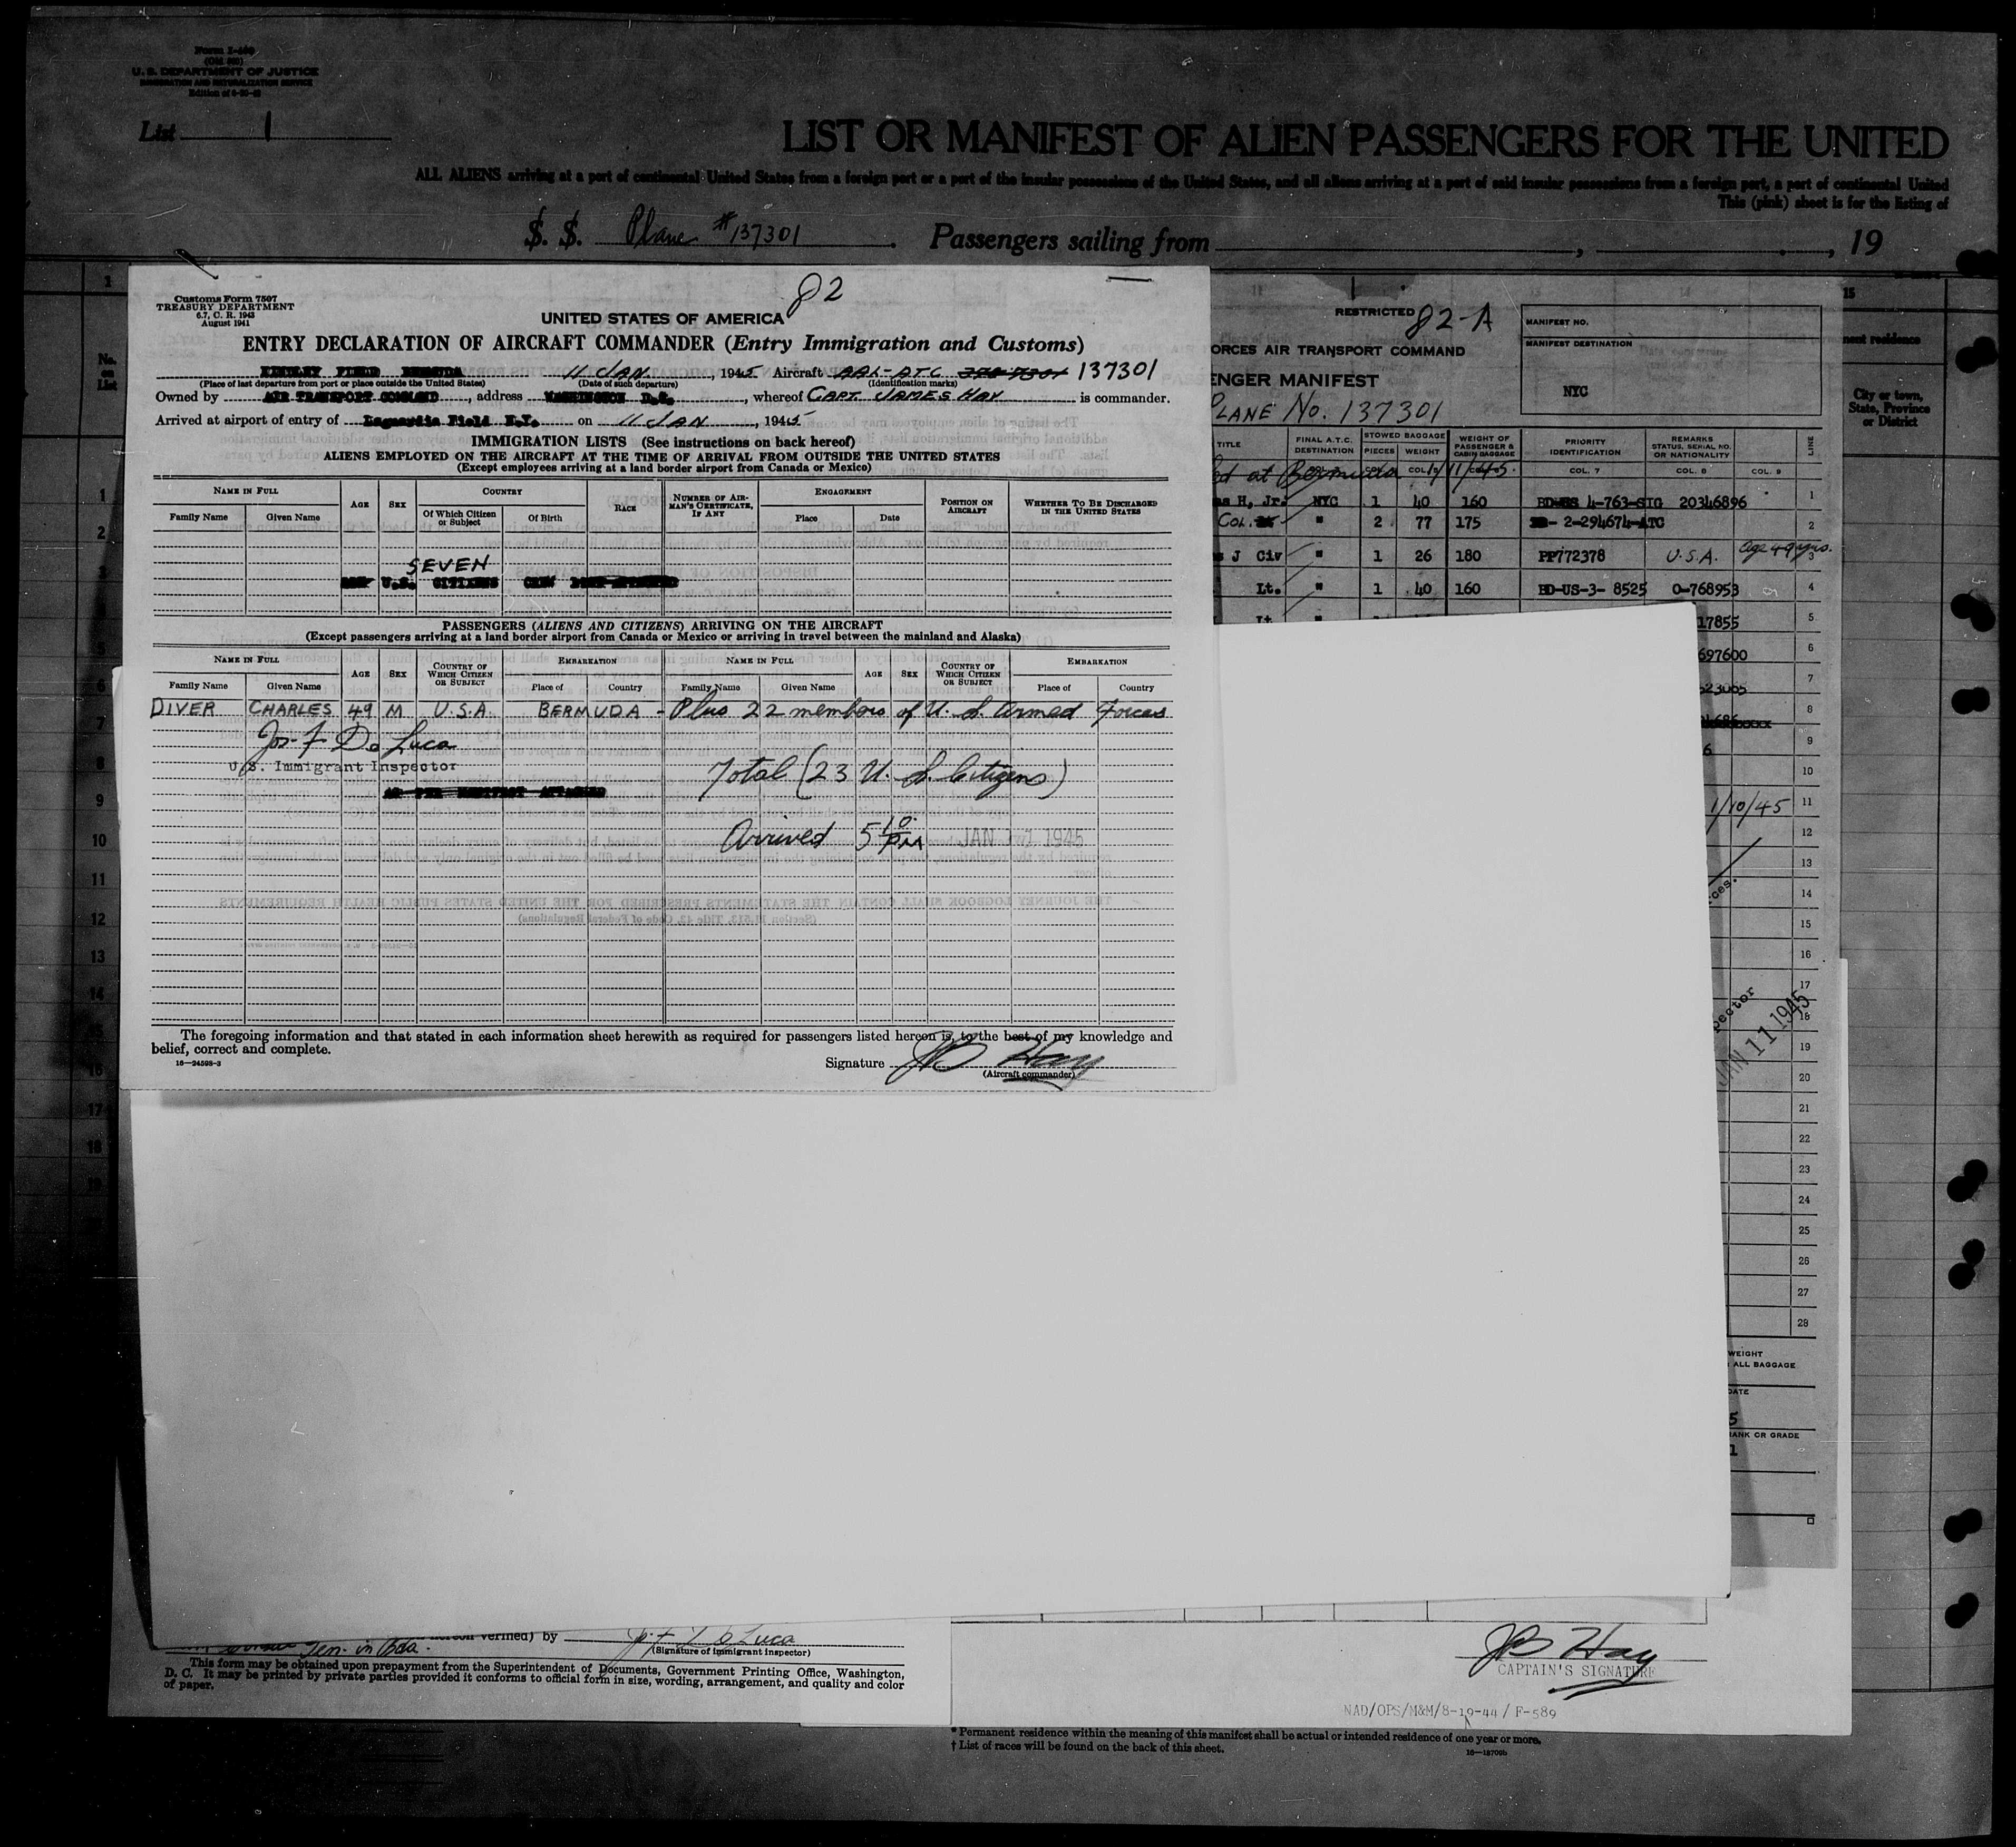 Form I-
U. S. DEPARTMENT OF JUSTICE
IMMIGRATION AND NATURALIZATION SERVICE
List 1
LIST OR MANIFEST OF ALIEN PASSENGERS FOR THE UNITED
ALL ALIENS arriving at a port of continental United States from a foreign port or a port of the insular possessions of the United States, and all aliens arriving at a port of said insular possessions from a foreign port, a port of continental United
This (pink) sheet is for the listing of
S. S. Plane #137301. Passengers sailing from , , 19
82
Customs Form 7507
TREASURY DEPARTMENT
6.7, C. R. 1943
August 1941
UNITED STATES OF AMERICA
ENTRY DECLARATION OF AIRCRAFT COMMANDER (Entry Immigration and Customs)
KINDLEY FIELD BERMUDA 11 JAN, 1945 Aircraft AAL-ATC 137301
(Place of last departure from port or place outside the United States) (Date of such departure) (Identification marks)
Owned by AIR TRANSPORT COMMAND, address WASHINGTON D.C., whereof CAPT. JAMES HAY is commander.
Arrived at airport of entry of Laguardia Field N.Y. on 11 JAN, 1945
IMMIGRATION LISTS (See instructions on back hereof)
ALIENS EMPLOYED ON THE AIRCRAFT AT THE TIME OF ARRIVAL FROM OUTSIDE THE UNITED STATES
(Except employees arriving at a land border airport from Canada or Mexico)
NAME IN FULL AGE SEX COUNTRY RACE NUMBER OF AIRMAN'S CERTIFICATE, IF ANY ENGAGEMENT POSITION ON AIRCRAFT WHETHER TO BE DISCHARGED IN THE UNITED STATES
Family Name Given Name Of Which Citizen or Subject Of Birth Place Date
SEVEN
U.S. CITIZENS CREW
PASSENGERS (ALIENS AND CITIZENS) ARRIVING ON THE AIRCRAFT
(Except passengers arriving at a land border airport from Canada or Mexico or arriving in travel between the mainland and Alaska)
NAME IN FULL AGE SEX COUNTRY OF WHICH CITIZEN OR SUBJECT EMBARKATION NAME IN FULL AGE SEX COUNTRY OF WHICH CITIZEN OR SUBJECT EMBARKATION
Family Name Given Name Place of Country Family Name Given Name Place of Country
DIVER CHARLES 49 M U.S.A. BERMUDA - Plus 22 members of U. S. Armed Forces
Jos. F De Luca
U.S. Immigrant Inspector
Total (23 U. S. Citizens)
AS PER MANIFEST ATTACHED
Arrived 5 10 PM JAN 11 1945
The foregoing information and that stated in each information sheet herewith as required for passengers listed hereon is, to the best of my knowledge and
belief, correct and complete.
16—24598-3
Signature JB Hay
(Aircraft commander)
RESTRICTED 82-A
ORCES AIR TRANSPORT COMMAND
ENGER MANIFEST
PLANE No. 137301
MANIFEST NO.
MANIFEST DESTINATION
NYC
TITLE FINAL A.T.C. DESTINATION STOWED BAGGAGE PIECES WEIGHT WEIGHT OF PASSENGER & CABIN BAGGAGE PRIORITY IDENTIFICATION REMARKS STATUS, SERIAL NO. OR NATIONALITY LINE
ed at Bermuda 1/11/45. COL. 7 COL. 8 COL. 9
as H, Jr. NYC 1 40 160 4-763-SIG 20346896 1
Col. " 2 77 175 2-294674-ATC 2
s J Civ " 1 26 180 PP772378 U.S.A. Age 49 yrs. 3
Lt. " 1 40 160 BD-US-3- 8525 0-768953 4
Lt. 17855 5
697600 6
23065 7
8
6 9
10
1/10/45 11
12
13
ces. 14
15
16
17
pector 18
JAN 11 1945
19
20
21
22
23
24
25
26
27
28
WEIGHT
ALL BAGGAGE
DATE
5
RANK OR GRADE
1
15
nent residence
City or town, State, Province or District
No. on List
1
2
3
5
6
7
8
9
10
11
12
13
14
16
17
18
19
verified) by Jos. F De Luca
(Signature of immigrant inspector)
This form may be obtained upon prepayment from the Superintendent of Documents, Government Printing Office, Washington,
D. C. It may be printed by private parties provided it conforms to official form in size, wording, arrangement, and quality and color
of paper.
JB Hay
CAPTAIN'S SIGNATURE
NAD/OPS/M&M/8-19-44 / F-589
* Permanent residence within the meaning of this manifest shall be actual or intended residence of one year or more.
† List of races will be found on the back of this sheet.